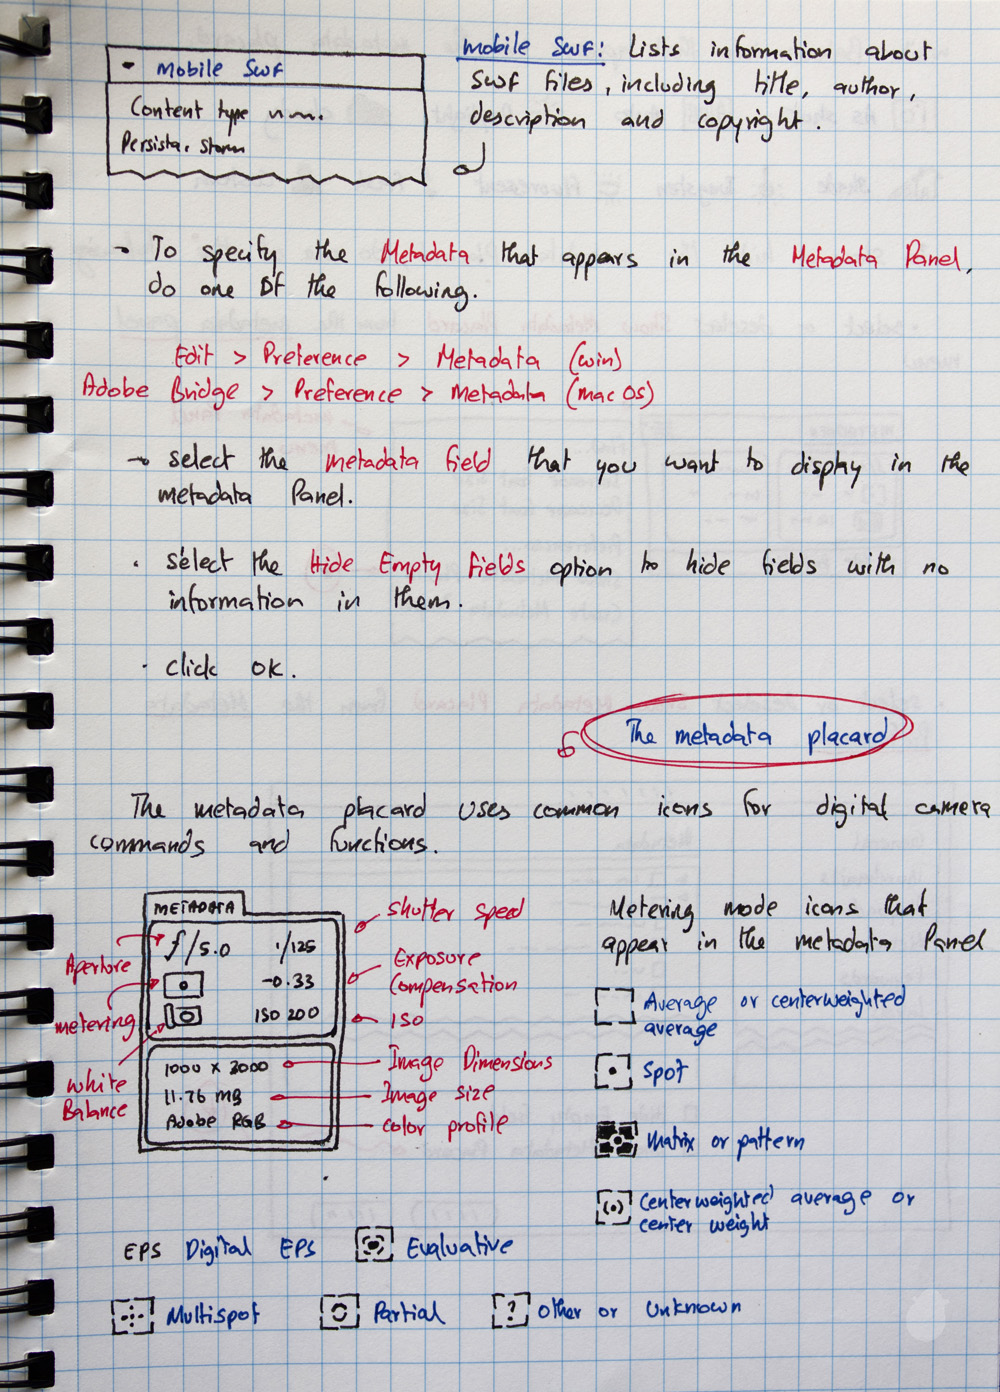 Mobile Swf
Content type
mobile Swf: Lists information about
swf files, including title, author,
description and copyright.
To specify the Metadata that appears in the Metadata Panel,
do one of the following.
Edit > Preference > Metadata (win)
Adobe Bridge > Preference > Metadata (mac OS)
select the metadata field that you want to display in the
metadata Panel.
select the Hide Empty Fields option to hide fields with no
information in them.
click OK.
The metadata placard
The metadata placard uses common icons for digital camera
commands and functions.
METADATA
f/5.0 1/125
-0.33
ISO 200
1000 x 3000
11.76 MB
Adobe RGB
Aperture
metering
White
Balance
Shutter Speed
Exposure
Compensation
ISO
Image Dimensions
Image size
color profile
Metering mode icons that
appear in the metadata Panel
Average or centerweighted
average
Spot
Matrix or pattern
Centerweighted average or
center weight
EPS Digital EPS Evaluative
Multispot Partial ? Other or Unknown